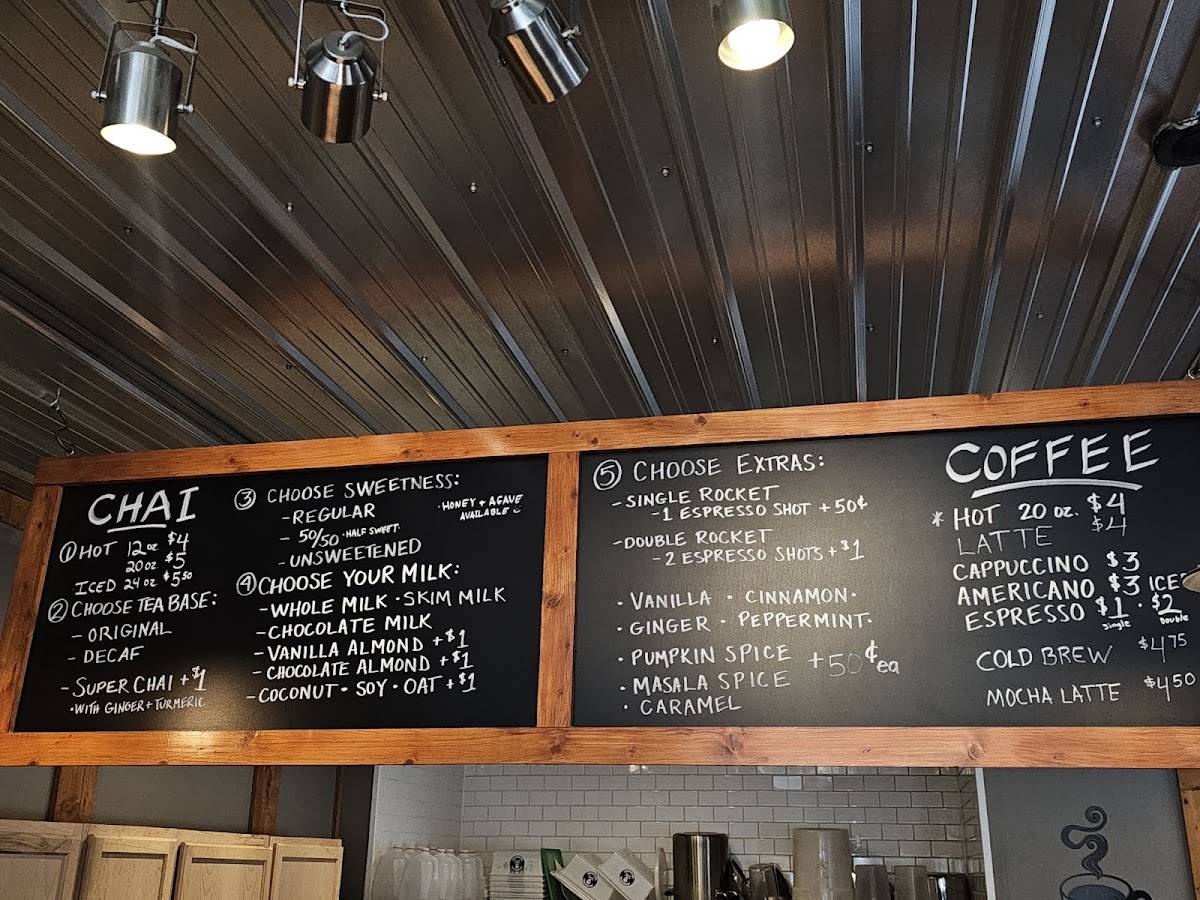 CHAI
① HOT 12oz $4
20oz. $5
ICED 24oz $5 50
② CHOOSE TEA BASE:
- ORIGINAL
- DECAF
- SUPER CHAI +$1
• WITH GINGER + TURMERIC
③ CHOOSE SWEETNESS:
- REGULAR
- 50/50 • HALF SWEET •
- UNSWEETENED
• HONEY + AGAVE
AVAILABLE
④ CHOOSE YOUR MILK:
- WHOLE MILK • SKIM MILK
- CHOCOLATE MILK
- VANILLA ALMOND +$1
- CHOCOLATE ALMOND +$1
- COCONUT • SOY • OAT +$1
⑤ CHOOSE EXTRAS:
- SINGLE ROCKET
- 1 ESPRESSO SHOT +50¢
- DOUBLE ROCKET
- 2 ESPRESSO SHOTS +$1
• VANILLA • CINNAMON •
• GINGER • PEPPERMINT •
• PUMPKIN SPICE
• MASALA SPICE
• CARAMEL
+50¢ ea
COFFEE
* HOT 20 oz. $4
LATTE $4
CAPPUCCINO $3
AMERICANO $3 ICE
ESPRESSO $1 • $2
single Double
COLD BREW $4 75
MOCHA LATTE $4 50